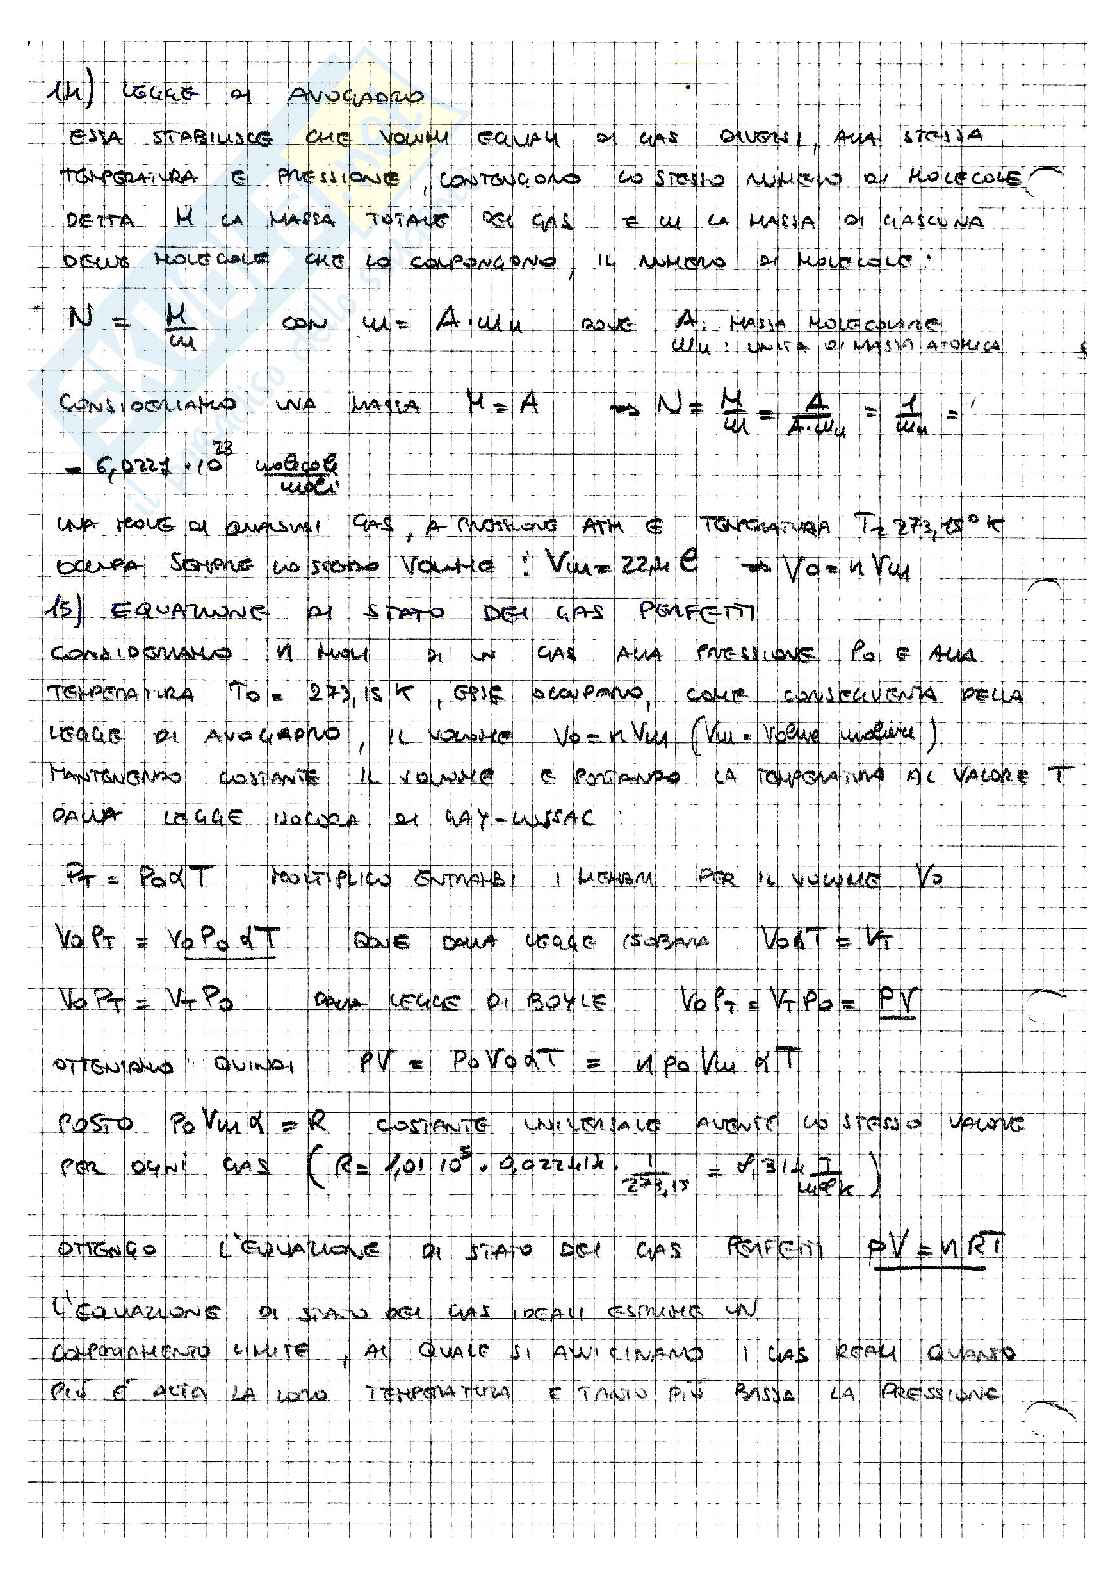 14) LEGGE DI AVOGADRO
ESSA STABILISCE CHE VOLUMI EQUALI DI GAS DIVERSI, ALLA STESSA
TEMPERATURA E PRESSIONE, CONTENGONO LO STESSO NUMERO DI MOLECOLE
DETTA M LA MASSA TOTALE DEL GAS E m LA MASSA DI CIASCUNA
DELLE MOLECOLE CHE LO COMPONGONO, IL NUMERO DI MOLECOLE:
N = M/m CON m = A·mu DOVE A: MASSA MOLECOLARE
mu: UNITÀ DI MASSA ATOMICA
CONSIDERIAMO UNA MASSA M = A => N = M/m = A/A·mu = 1/mu =
= 6,0227·10^23 molecole/moli
UNA MOLE DI QUALSIASI GAS, A PRESSIONE ATM E TEMPERATURA T = 273,15°K
OCCUPA SEMPRE LO STESSO VOLUME: Vm = 22,4 l => V0 = n Vm
15) EQUAZIONE DI STATO DEI GAS PERFETTI
CONSIDERIAMO n MOLI DI UN GAS ALLA PRESSIONE P0 E ALLA
TEMPERATURA T0 = 273,15 K, ESSE OCCUPANO, COME CONSEGUENZA DELLA
LEGGE DI AVOGADRO, IL VOLUME V0 = n Vm (Vm = Volume molare)
MANTENENDO COSTANTE IL VOLUME E PORTANDO LA TEMPERATURA AL VALORE T
DALLA LEGGE ISOCORA DI GAY-LUSSAC:
PT = P0 α T MOLTIPLICO ENTRAMBI I MEMBRI PER IL VOLUME V0
V0 PT = V0 P0 α T DOVE DALLA LEGGE ISOBARA V0 α T = VT
V0 PT = VT P0 DALLA LEGGE DI BOYLE V0 PT = VT P0 = PV
OTTENIAMO QUINDI PV = P0 V0 α T = n P0 Vm α T
POSTO P0 Vm α = R COSTANTE UNIVERSALE AVENTE LO STESSO VALORE
PER OGNI GAS (R = 1,01 10^5 · 0,022414 · 1/273,15 = 8,314 J/mol K)
OTTENGO L'EQUAZIONE DI STATO DEI GAS PERFETTI pV = nRT
L'EQUAZIONE DI STATO DEI GAS IDEALI ESPRIME UN
COMPORTAMENTO LIMITE, AL QUALE SI AVVICINANO I GAS REALI QUANTO
PIÙ È ALTA LA LORO TEMPERATURA E TANTO PIÙ BASSA LA PRESSIONE